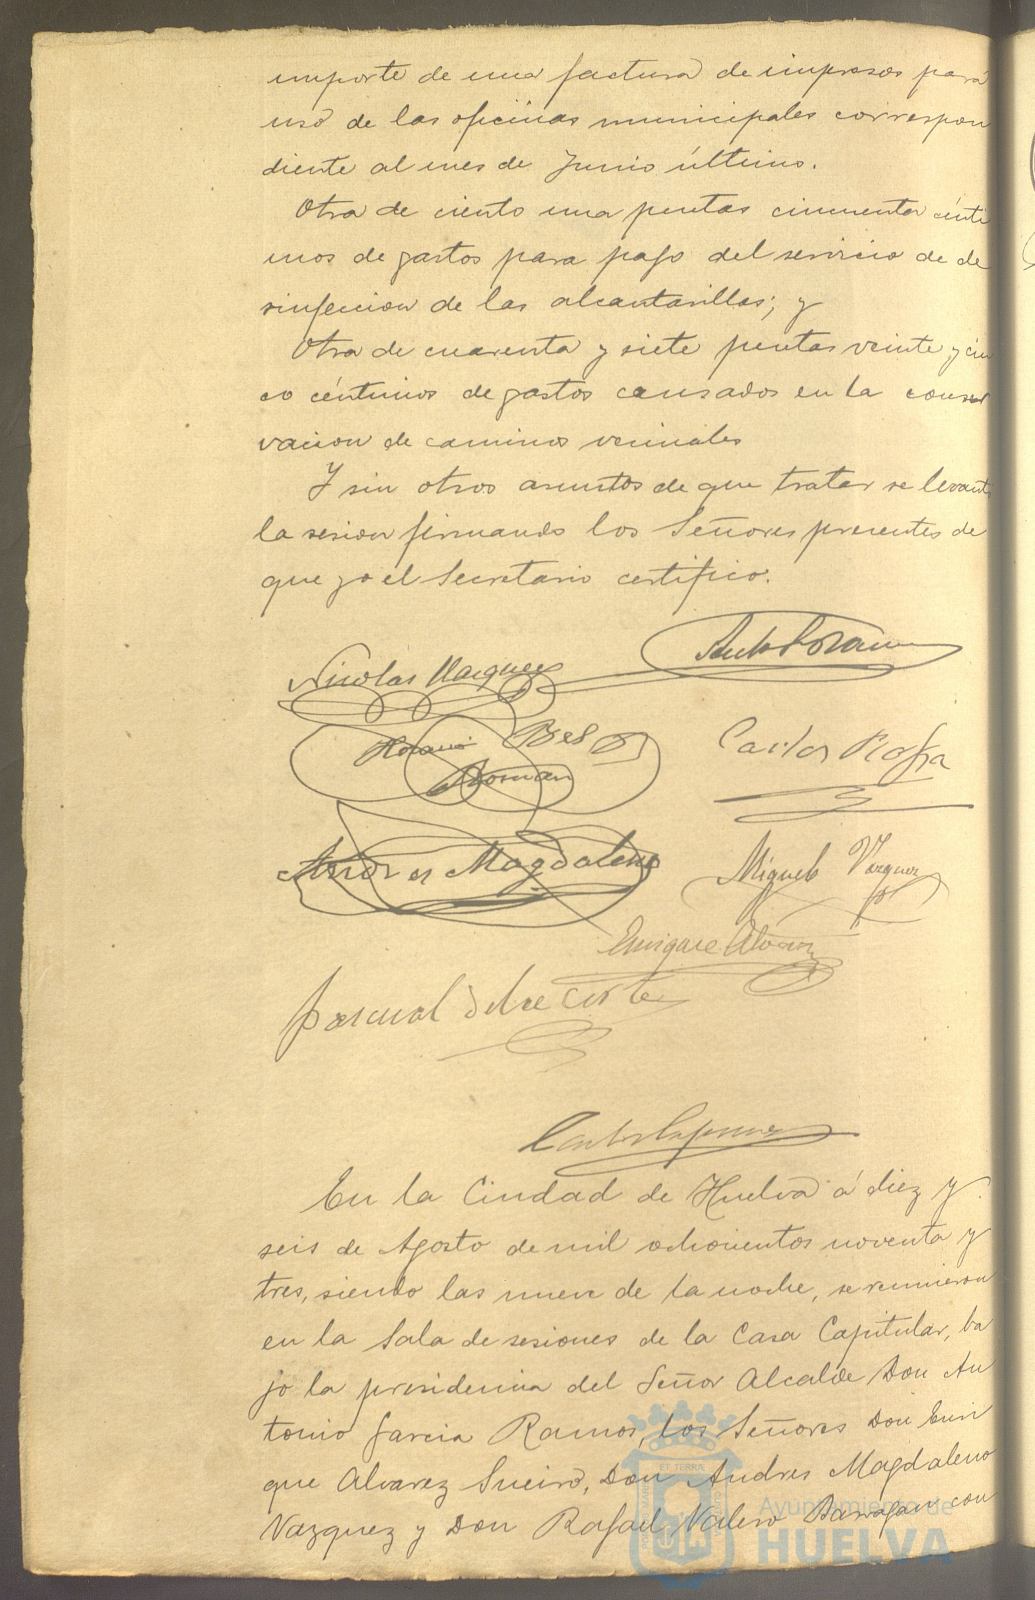 importe de una factura de impresos para
uso de las oficinas municipales correspon
diente al mes de Junio último.
Otra de ciento una pesetas cincuenta cénti
mos de gastos para pago del servicio de de
sinfeccion de las alcantarillas; y
Otra de cuarenta y siete pesetas veinte y cin
co céntimos de gastos causados en la conser
vacion de caminos vecinales
Y sin otros asuntos de que tratar se levantó
la sesion firmando los Señores presentes de
que yo el Secretario certifico.
Nicolás Vazquez
Carlos
Andres Magdaleno
Miguel Vazquez
Enrique Alvarez
Pascual de la Corte
En la Ciudad de Huelva á diez y
seis de Agosto de mil ochocientos noventa y
tres, siendo las nueve de la noche, se reunieron
en la Sala de sesiones de la Casa Capitular, ba
jo la presidencia del Señor Alcalde Don An
tonio Garcia Ramos, los Señores Don Enri
que Alvarez Sueiro, Don Andres Magdaleno
Vazquez y Don Rafael Valero Barragan con
ET TERRÆ
Ayuntamiento de
HUELVA